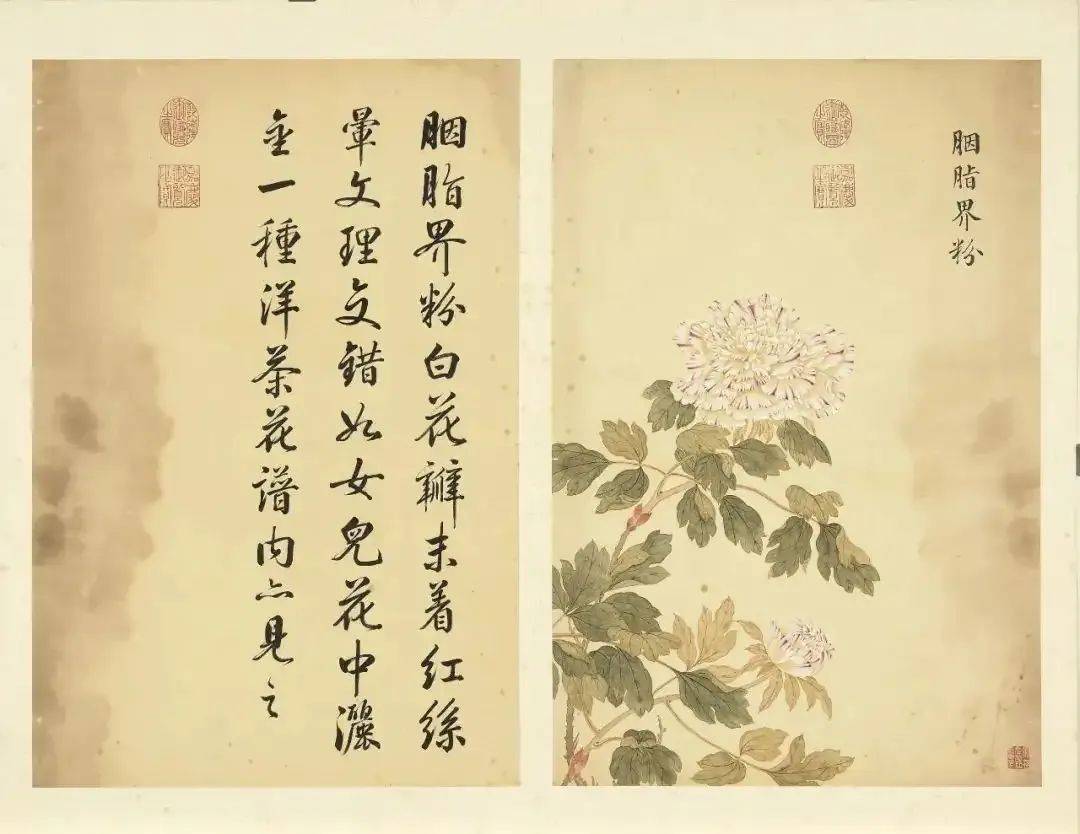 胭脂界粉
胭脂界粉白花瓣末着紅絲
暈文理交錯如女兒花中灑
金一種洋茶花譜内亦見之